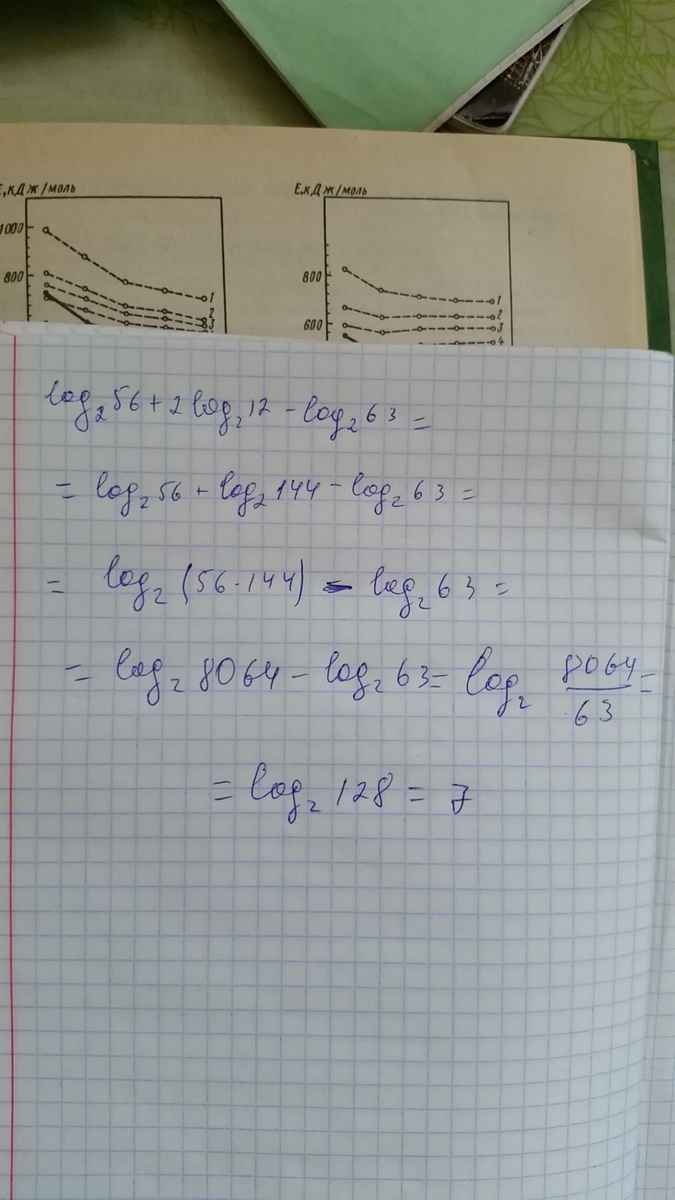 Е,кДж/моль Е,кДж/моль
1000
800 800
1 1
2 2
3 600 3
4
log₂56+2log₂12-log₂63=
=log₂56+log₂144-log₂63=
=log₂(56·144)-log₂63=
=log₂8064-log₂63=log₂ 8064/63=
=log₂128=7